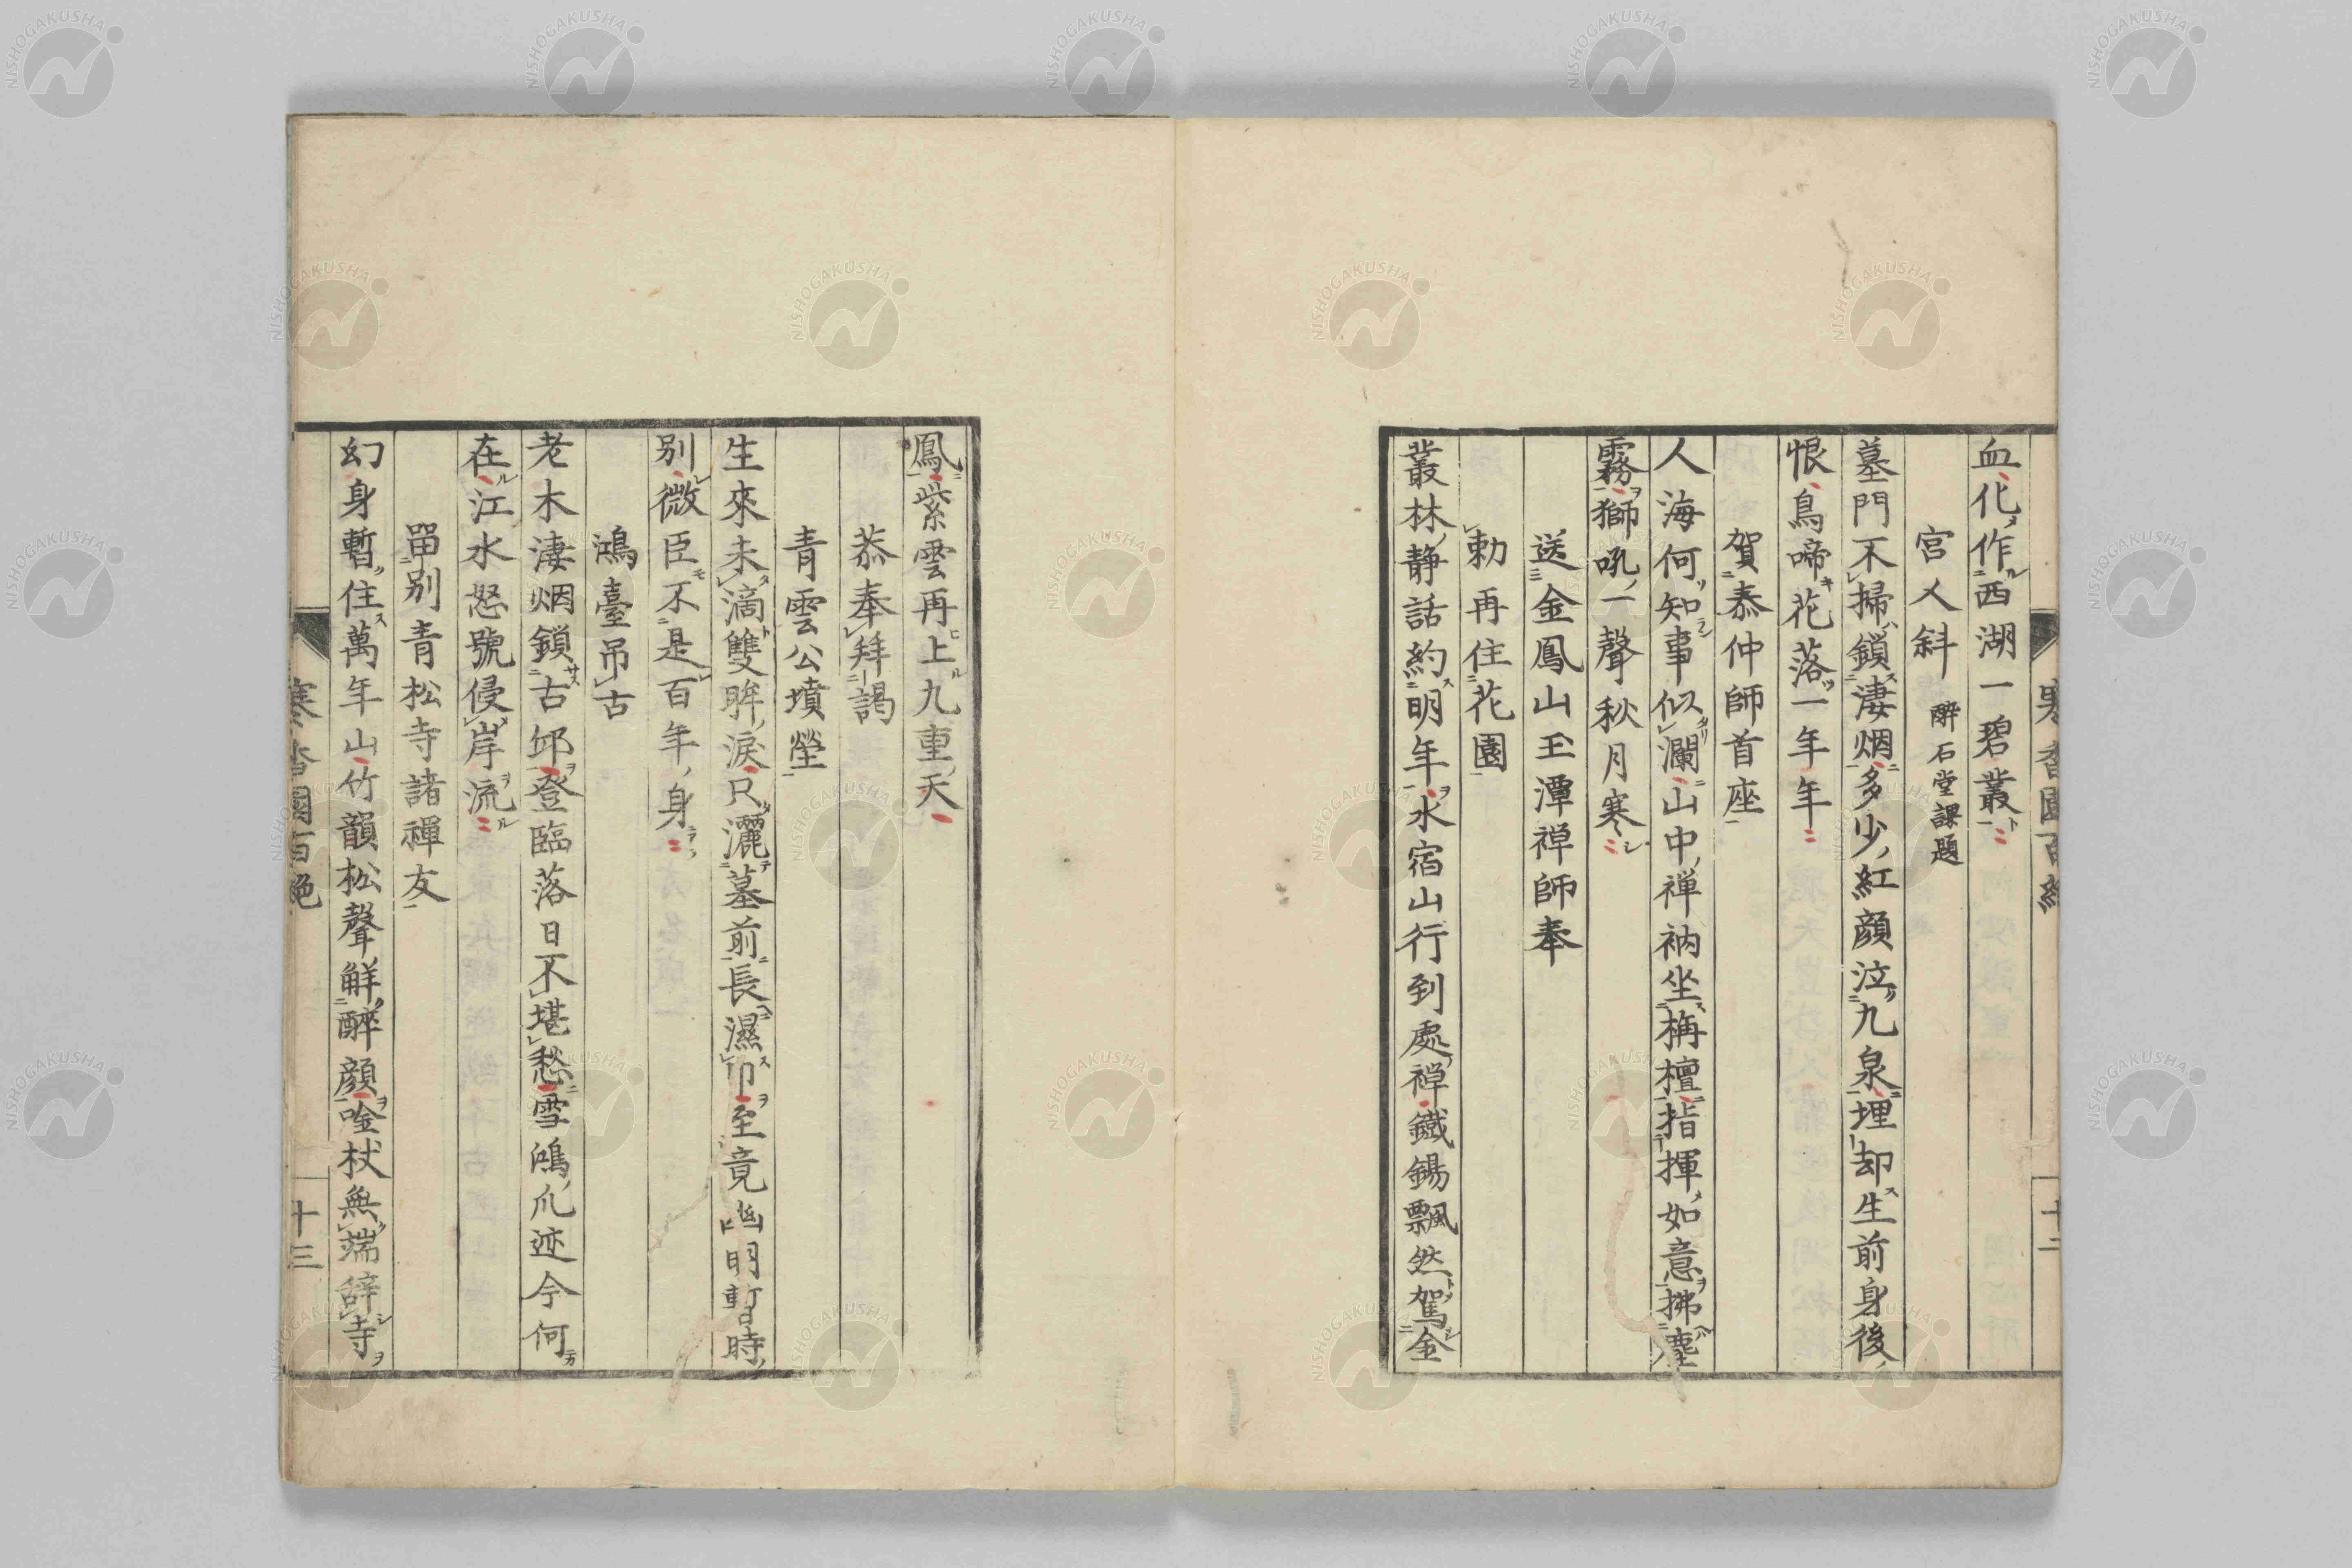 血化作西湖一碧叢
宮人斜 醉石堂課題
墓門不掃鎖淒烟多少紅顔泣九泉埋却生前身後
恨鳥啼花落一年年
賀泰仲師首座
人海何知事似瀾山中禅衲坐栴檀指揮如意拂塵
霧獅吼一聲秋月寒
送金鳳山玉潭禅師奉
勅再住花園
叢林静話約明年水宿山行到處禅鐵錫飄然駕金
鳳紫雲再上九重天
恭奉拜謁
青雲公墳塋
生來未滴雙眸淚只灑墓前長濕巾至竟幽明暫時
別微臣不是百年身
鴻臺吊古
老木淒烟鎖古邱登臨落日不堪愁雪鴻爪迹今何
在江水怒號侵岸流
畱別青松寺諸禪友
幻身暫住萬年山竹韻松聲觧醉顔唫杖無端辭寺
寒香園百絶
十三
NISHOGAKUSHA